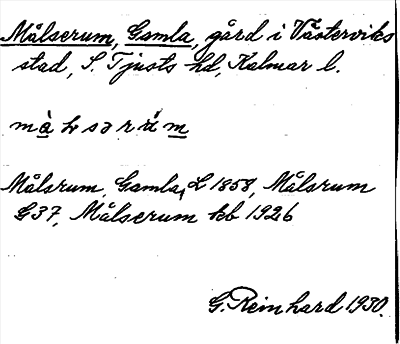 Målserum, Gamla, gård i Västerviks
stad, S. Tjusts hd, Kalmar l.
Målsrum, Gamla, L 1858, Målsrum
G37, Målserum kb 1926
G. Reinhard 1930.